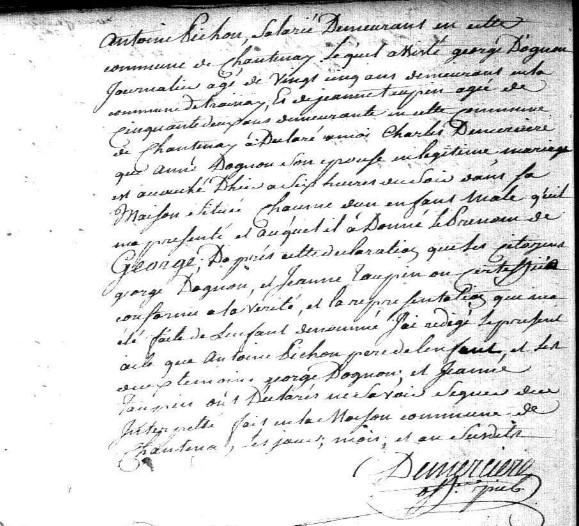 Antoine Pichon, Salarié Demeurant en cette
commune de Chantenay Lequel assisté george Dagnon
Journalier agé de vingt cinq ans demeurant en la
commune de trainay, Et de jeanne taupin agée de
Cinquante deux ans demeurante en cette Commune
de Chantenay à Déclaré a moi Charles Demerciere
que anne Dagnon Son epouse en legitime mariage
est accouché D'hier a Six heures du Soir dans Sa
Maison Située dun enfant Male qu'il
ma presenté et auquel il à Donné le prenom de
George; Daprès cette declaration que les citoyens
george Dagnon, et Jeanne Taupin ont Certiffié
conforme a la verité, et la representation que ma
eté faite de Lenfant denommé J'ai redigé le present
acte que Antoine Pichon pere de lenfant, et les
deux temoins george Dagnon; et Jeanne
Taupin ont Déclarés ne Savoir Signer de
fait en la Maison commune de
Chantenay, les jour, mois, et an Susdits
Demerciere
off. pub.